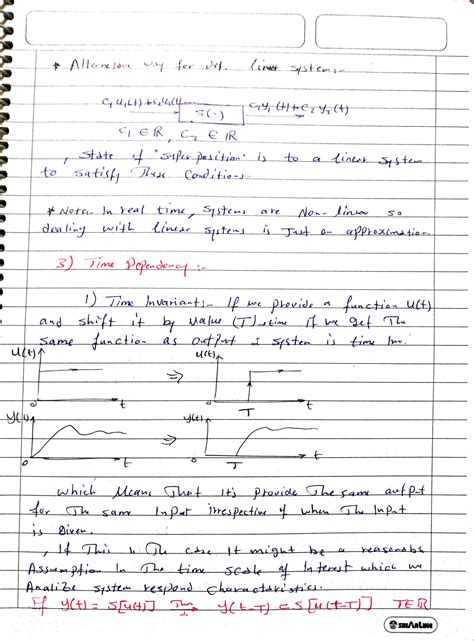 * Alternative way for def. linear systems:-
C₁u₁(t)+C₂u₂(t) S(.) C₁y₁(t)+C₂y₂(t)
C₁ ∈ ℝ, C₂ ∈ ℝ
, state of "super position" is to a linear system
to satisfy These Conditions.
* Note:- In real time, systems are Non-linear so
dealing with linear systems is Just an approximation
3) Time Dependency:-
1) Time Invariant:- If we provide a function u(t)
and shift it by value (T) time if we get The
same function as output system is time Inv.
u(t) u(t)
⇒
0 t 0 T t
y(t) y(t)
⇒
0 t T t
which Means That It's provide The same output
for The same Input irrespective of when The Input
is Given.
, If This is The case It might be a reasonabs
Assumption in The time scale of Interest which we
Analize system respond Characteristics.
If y(t) = S[u(t)] Then y(t-T) = S[u(t-T)] T∈ℝ